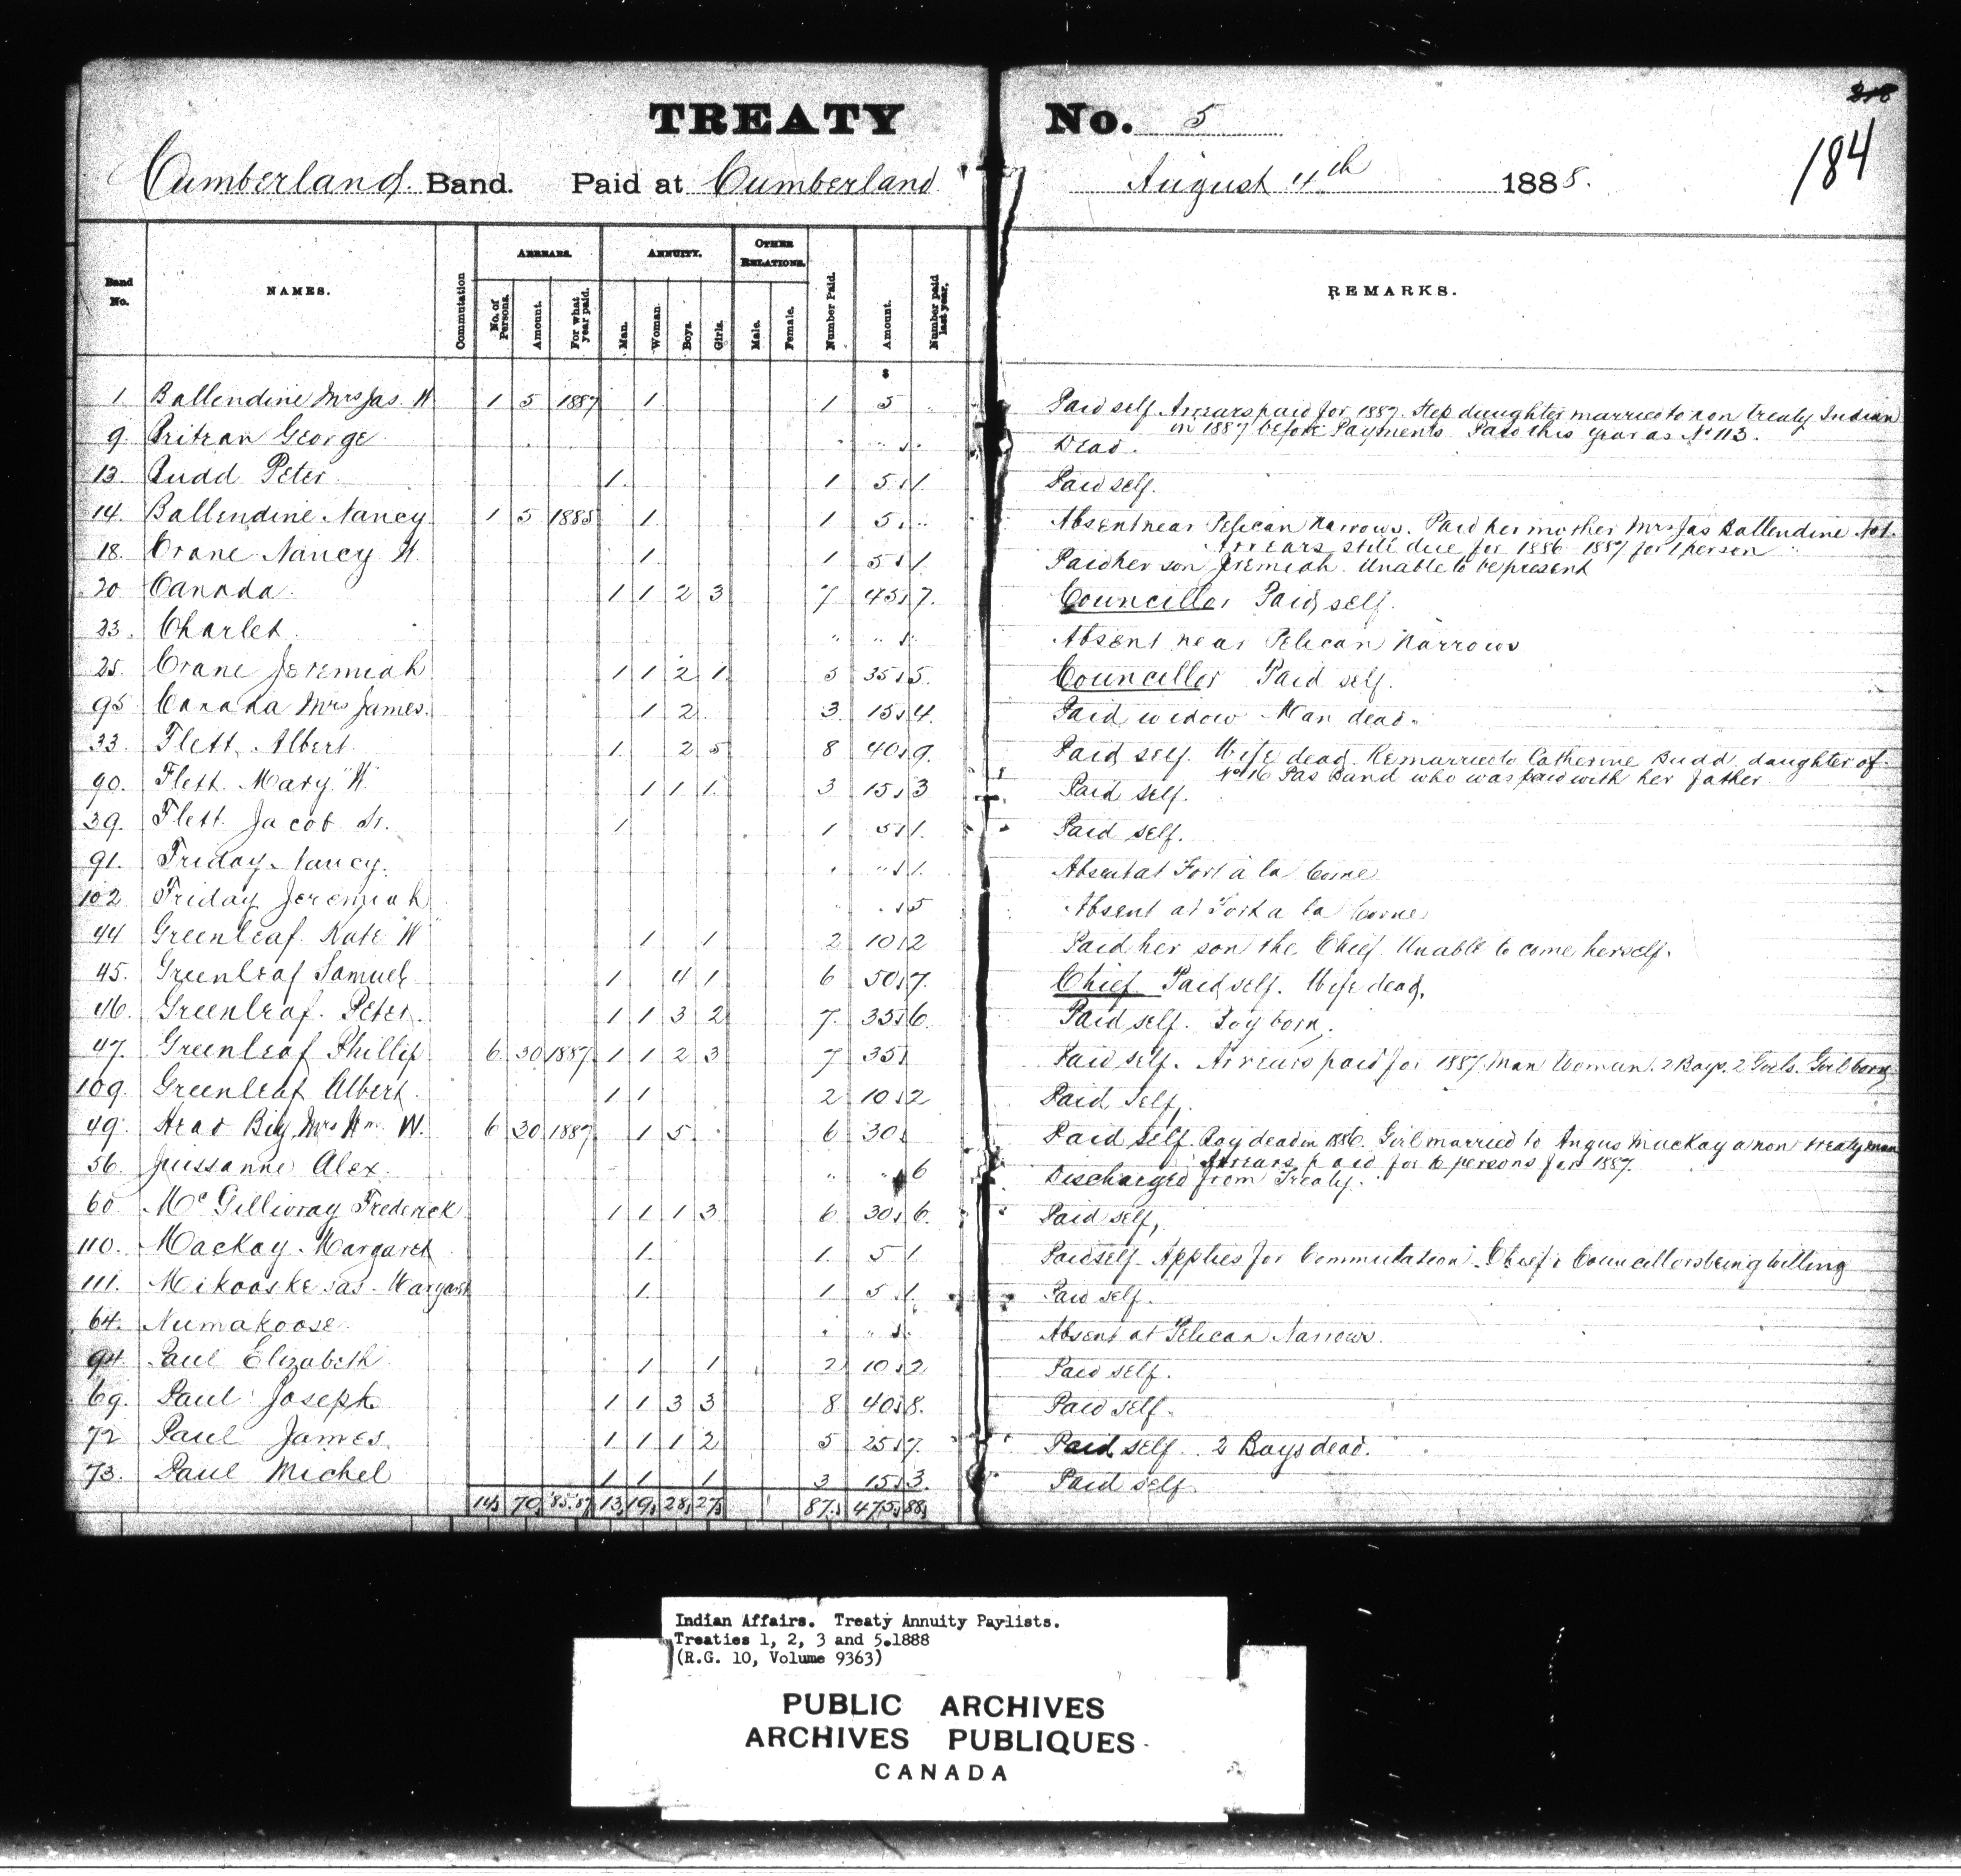 218
184
TREATY No. 5
Cumberland Band. Paid at Cumberland August 4th 1888.
Band No. NAMES. Commutation ARREARS. No. of Persons. Amount. For what year paid. ANNUITY. Man. Woman. Boys. Girls. OTHER RELATIONS. Male. Female. Number Paid. Amount. Number paid last year. REMARKS.
$
1 Ballendine Mrs Jas. W 1 5 1887 1 1 5 Paid self Arrears paid for 1887. Step daughter married to non Treaty Indian
in 1887 before Payments Paid this year as No 113.
9. George " " 1. Dead.
13. Budd Peter 1. 1 5 1. Paid self.
14. Ballendine Nancy 1 5 1885 1. 1 5 " Absent near Pelican Narrows. Paid her mother Mrs Jas Ballendine No 1.
Arrears still due for 1886 1887 for 1 person
18. Crane Nancy W. 1. 1 5 1. Paid her son Jeremiah. Unable to be present
20 Canada. 1 1 2 3 7 45 7. Councillor Paid self.
23. Charlet. " " 1. Absent near Pelican Narrows
25. Crane Jeremiah 1 1 2 1. 5 35 5. Councillor Paid self.
95 Canada Mrs James. 1 2 3. 15 4. Paid widow Man dead.
33. Flett Albert. 1. 2 5 8 40 9. Paid self. Wife dead. Remarried to Catherine Budd daughter of
No 16 Pas Band who was paid with her father
90. Flett Mary "W" 1 1 1. 3 15 3 Paid self.
39. Flett Jacob Sr. 1 1 5 1. Paid self.
91. Friday Nancy. " " 1. Absent at Fort à la Corne
102 Friday Jeremiah " " 5 Absent at Fort a la Corne
44 Greenleaf Kate "W" 1 1 2 10 2 Paid her son the Chief. Unable to come herself.
45. Greenleaf Samuel 1 4 1 6 50 7. Chief Paid self. Wife dead.
46. Greenleaf. Peter. 1 1 3 2 7. 35 6. Paid self. Boy born.
47. Greenleaf Phillip 6 30 1887 1 1 2 3 7 35 Paid self. Arrears paid for 1887 Man Woman. 2 Boys. 2 Girls. Girl born
109. Greenleaf Albert. 1 1 2 10 2 Paid Self.
49. Head Big Mrs Wm. W. 6 30 1887 1 5 6 30 Paid self. Boy dead in 1886. Girl married to Angus MacKay a non treaty man
Arrears paid for 6 persons for 1887.
56. Alex. " " 6 Discharged from Treaty.
60. McGillivray Frederick 1 1 1 3 6 30 6. Paid self,
110. Mackay Margaret 1. 1. 5 1. Paid self. Applies for Commutation. Chief & Councillors being willing
111. 1. 1 5 1. Paid self.
64. Numakoose " " 1. Absent at Pelican Narrows.
94. Paul Elizabeth 1 1 2 10 2 Paid self.
69. Paul Joseph 1 1 3 3 8 40 8. Paid self.
72 Paul James. 1 1 1 2 5 25 7. Paid self. 2 Boys dead.
73. Paul Michel 1 1 1 3 15 3. Paid self
14 70 '85.'87 13 19 28 27 87. 475 88
Indian Affairs. Treaty Annuity Paylists.
Treaties 1, 2, 3 and 5.1888
(R.G. 10, Volume 9363)
PUBLIC ARCHIVES
ARCHIVES PUBLIQUES
CANADA